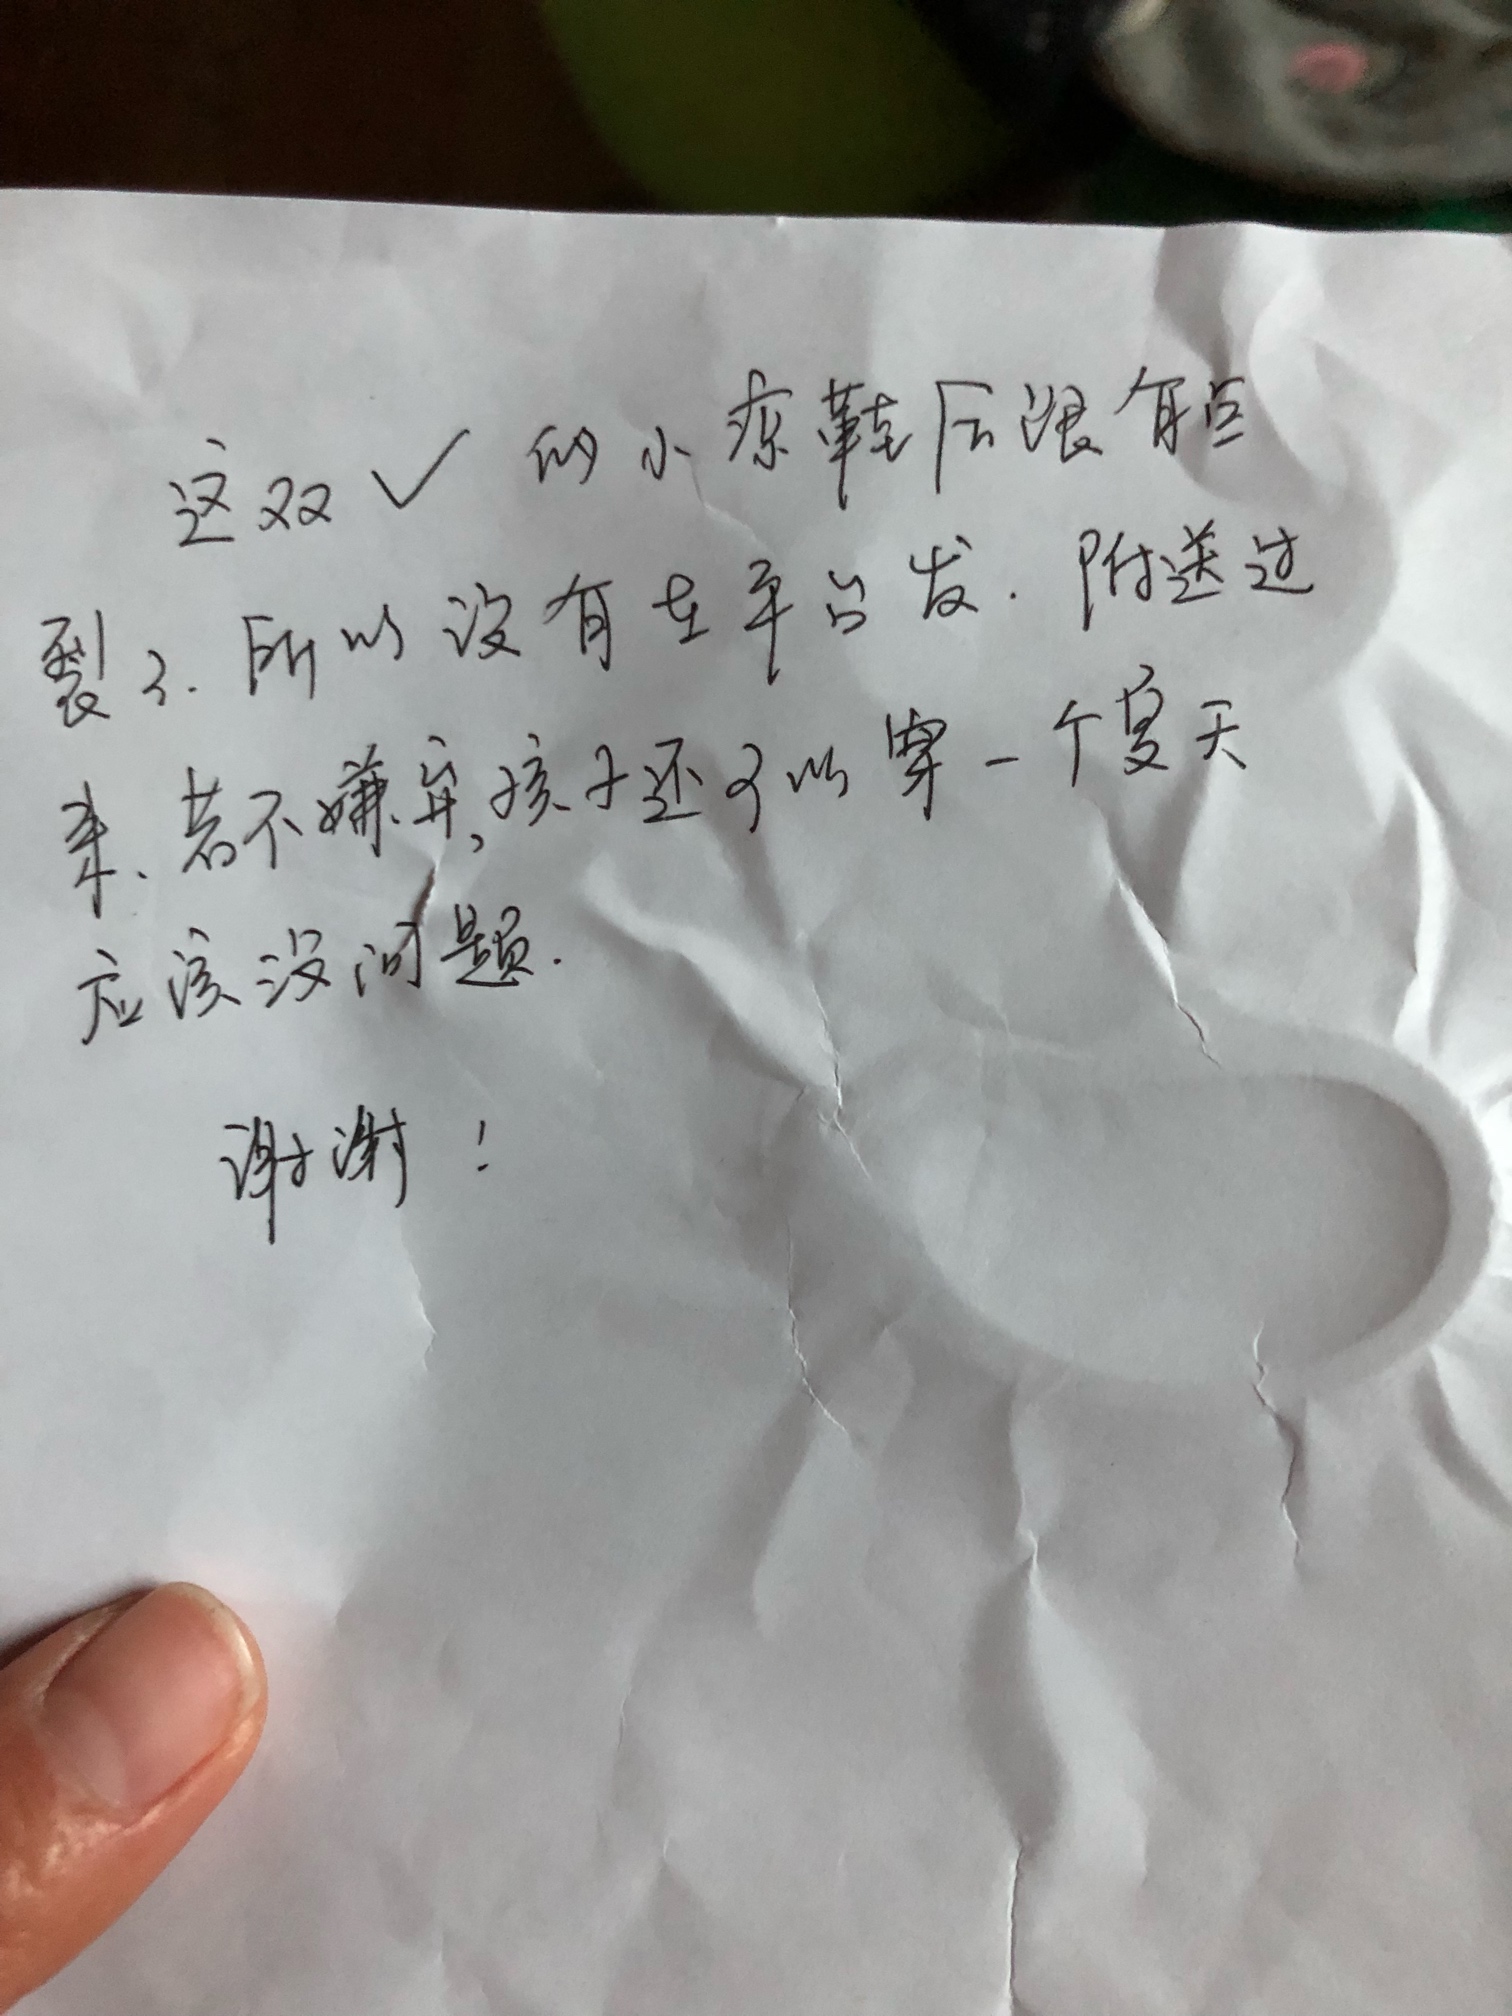 这双✓的小凉鞋后跟有点
裂了.所以没有在平台发.附送过
来、若不嫌弃,孩子还可以穿一个夏天
应该没问题.
谢谢!